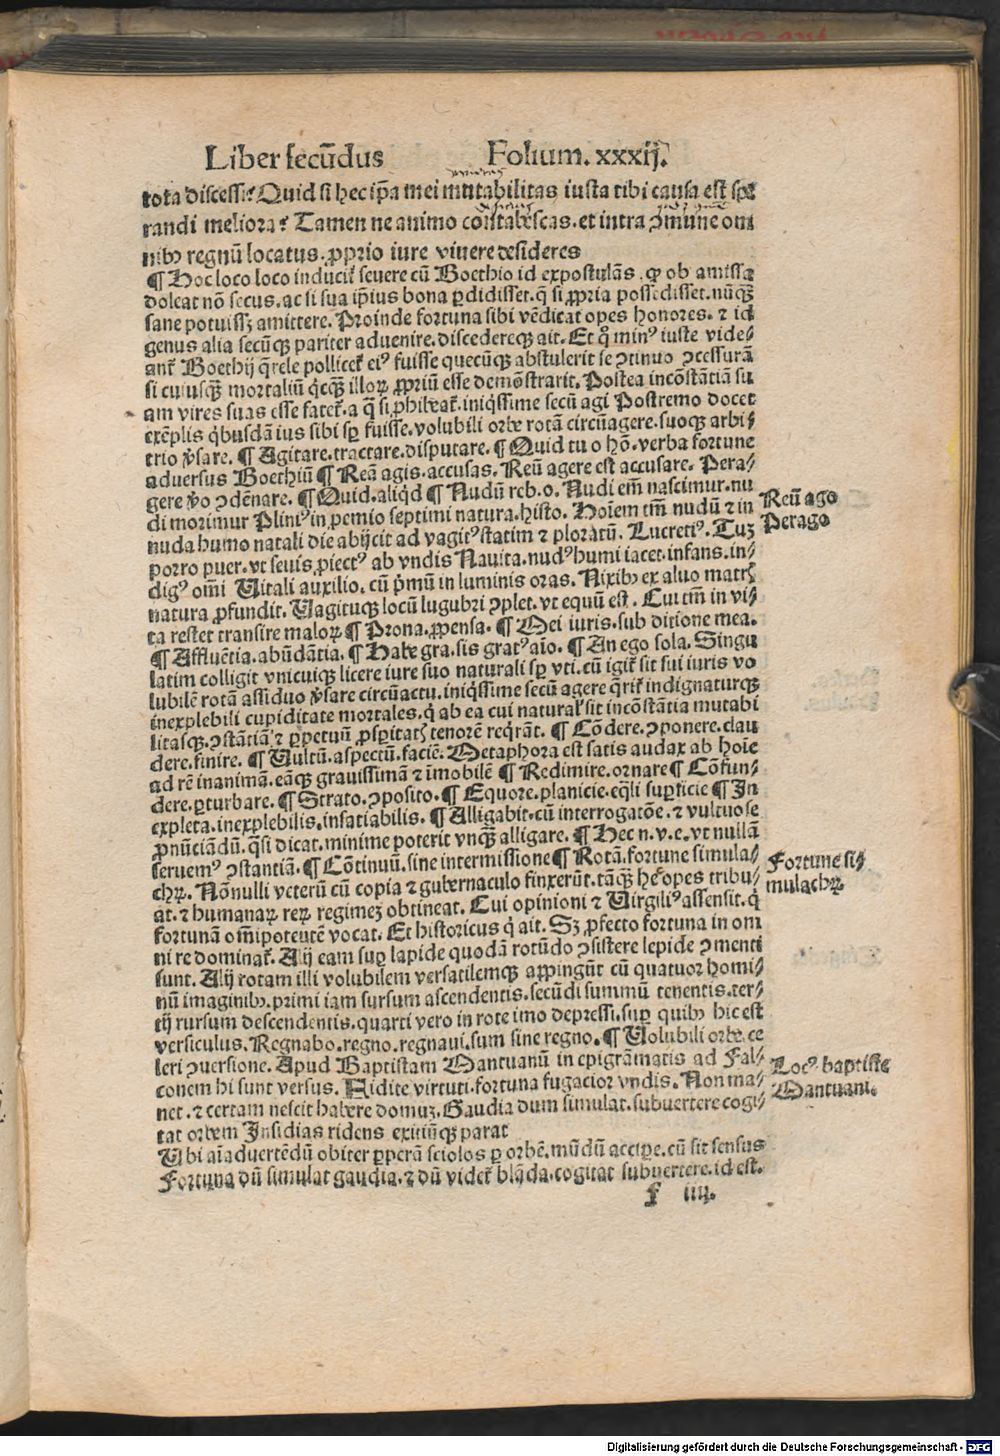 Liber secūdus Folium. xxxij.
tota discessi? Quid si hec ip̄a mei mutabilitas iusta tibi causa est spe
randi meliora? Tamen ne animo contabescas. et intra ꝯmune om
nibꝰ regnū locatus. ꝓprio iure viuere desideres
¶ Hoc loco loco inducit̉ seuere cū Boethio id expostulās. ꝙ ob amissa
doleat nō secus. ac si sua ip̄ius bona ꝑdidisset. q̄ si ꝓpria possedisset. nūq̄ꝫ
sane potuissꝫ amittere. Proinde fortuna sibi vēdicat opes honores. ⁊ id
genus alia secūqꝫ pariter aduenire. discedereqꝫ ait. Et qͦ minꝰ iuste vide⸗
ant̉ Boethij q̄rele pollicet̉ eiꝰ fuisse quecūqꝫ abstulerit se ꝯtinuo ꝯcessurā
si cuiusqꝫ̄ mortaliū qͥcqꝫ̄ illoꝝ ꝓpriū esse demōstrarit. Postea incōstātiā su
am vires suas esse fatet̉. a q̄ si ꝓhibeat̉. iniqͥssime secū agi Postremo docet
exēplis qͥbusdā ius sibi sꝑ fuisse. volubili orbe rotā circūagere. suoqꝫ arbi⸗
trio v̓sare. ¶ Agitare. tractare. disputare. ¶ Quid tu o hō. verba fortune
aduersus Boethiū ¶ Reā agis. accusas. Reū agere est accusare. Pera⸗
gere v̓o ꝯdēnare. ¶ Quid. aliqͥd ¶ Nudū reb. o. Nudi em̄ nascimur. nu
di morimur Pliniꝰ in ꝓemio septimi natura. histo. Hoīem tm̄ nudū ⁊ in
nuda humo natali die abijcit ad vagitꝰ statim ⁊ ploratū. Lucretiꝰ. Tuꝫ
porro puer. vt seuis ꝓiectꝰ ab vndis Nauita. nudꝰ humi iacet. infans. in⸗
digꝰ om̄i Uitali auxilio. cū pͥmū in luminis oras. Nixibꝰ ex aluo matrꝭ
natura ꝓfundit. Uagituqꝫ locū lugubri ꝯplet. vt equū est. Cui tm̄ in vi⸗
ta restet transire maloꝝ ¶ Prona. ꝓpensa. ¶ Mei iuris. sub ditione mea.
¶ Affluētia. abūdātia. ¶ Habe gra. sis gratꝰ aīo. ¶ An ego sola. Singu
latim colligit vnicuiqꝫ licere iure suo naturali sꝑ vti. cū igit̉ sit sui iuris vo
lubilē rotā assiduo v̓sare circūactu. iniqͥssime secū agere q̄rit̉ indignaturqꝫ
inexplebili cupiditate mortales. qͥ ab ea cui natural̉ sit incōstātia mutabi
litasqꝫ. ꝯstātiā ⁊ ꝑpetuū ꝓsꝑitatꝭ tenorē reqͥrāt. ¶ Cōdere. ꝯponere. clau
dere. finire. ¶ Uultū. aspectū. faciē. Metaphora est satis audax ab hoīe
ad rē inanimā. eāqꝫ grauissimā ⁊ īmobilē ¶ Redimire. ornare ¶ Cōfun⸗
dere. ꝑturbare. ¶ Strato. ꝯposito. ¶ Equore. planicie. eq̄li suꝑficie ¶ In
expleta. inexplebilis. insatiabilis. ¶ Alligabit. cū interrogatōe. ⁊ vultuose
ꝓnūciādū. q̄si dicat. minime poterit vnqꝫ̄ alligare. ¶ Hec n. v. e. vt nullā
seruemꝰ ꝯstantiā. ¶ Cōtinuū. sine intermissione ¶ Rotā. fortune simula⸗
chꝝ. Nōnulli veterū cū copia ⁊ gubernaculo finxerūt. tāqꝫ̄ hec opes tribu⸗
at. ⁊ humanaꝝ reꝝ regimeꝫ obtineat. Cui opinioni ⁊ Virgiliꝰ assensit. qͥ
fortunā om̄ipotētē vocat. Et historicus qͥ ait. Sꝫ ꝓfecto fortuna in om
ni re dominat̉. Alij eam suꝑ lapide quodā rotūdo ꝯsistere lepide ꝯmenti
sunt. Alij rotam illi volubilem versatilemqꝫ appingūt cū quatuor homi⸗
nū imaginibꝰ. primi iam sursum ascendentis. secūdi summū tenentis. ter⸗
tij rursum descendentis. quarti vero in rote imo depressi. suꝑ quibꝰ hic est
versiculus. Regnabo. regno. regnaui. sum sine regno. ¶ Uolubili orbe. ce
leri ꝯuersione. Apud Baptistam Mantuanū in epigrāmatis ad Fal⸗
conem hi sunt versus. Fidite virtuti. fortuna fugacior vndis. Non ma⸗
net. ⁊ certam nescit habere domuꝫ. Gaudia dum simulat. subuertere cogi⸗
tat orbem Insidias ridens exitiūqꝫ parat
Ubi aīaduertēdū obiter ꝑperā sciolos ꝑ orbē. mūdū accipe. cū sit sensus
Fortuna dū simulat gaudia. ⁊ dū videt̉ blāda. cogitat subuertere. id est.
f iiij.
Reū ago
Perago
Fortune si⸗
mulachꝝ.
Locꝰ baptiste
Mantuani.
Digitalisierung gefördert durch die Deutsche Forschungsgemeinschaft - DFG